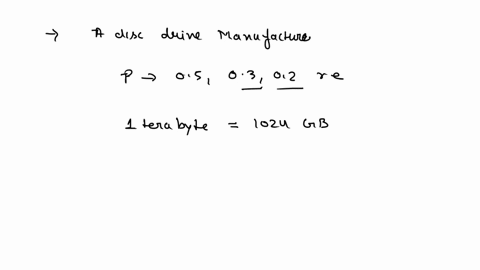 → A disc drive Manufacture
P → 0.5, 0.3, 0.2 re
1 terabyte = 1024 GB